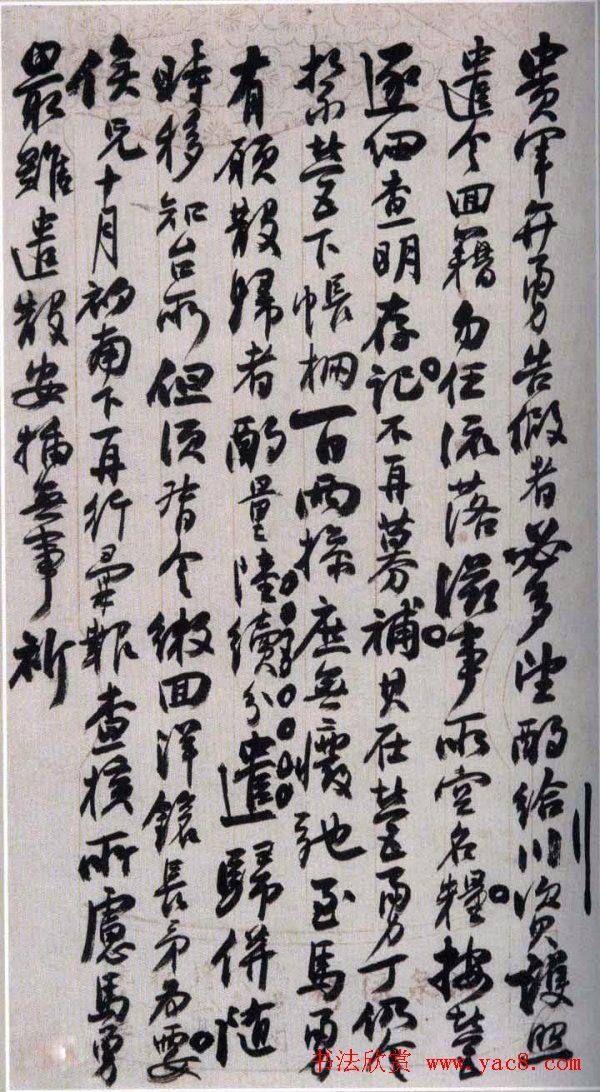 貴軍弁勇告假者必多望酌給川資護照
遣令回籍勿任流落滋事所空名糧按營
逐細查明存記不再募補其在營勇丁仍令
紮營下帳棚一日兩操庶無廢弛至馬勇
有願散歸者酌量陸續分遣歸併隨
時移知台所但須責令繳回洋鎗長矛為要
俟兄十月初南下再行查核所慮馬勇
最難遣散安插無事祈
书法欣赏 www.yac8.com